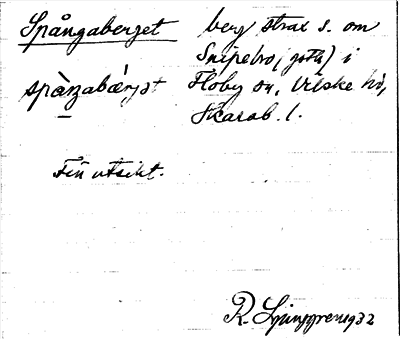 Spångaberget berg strax s. om
Snipebro (gota) i
spàŋabæ̀rjət Floby sn, Vilske hd,
Skarab. l.
Fin utsikt.
R. Ljunggren 1932